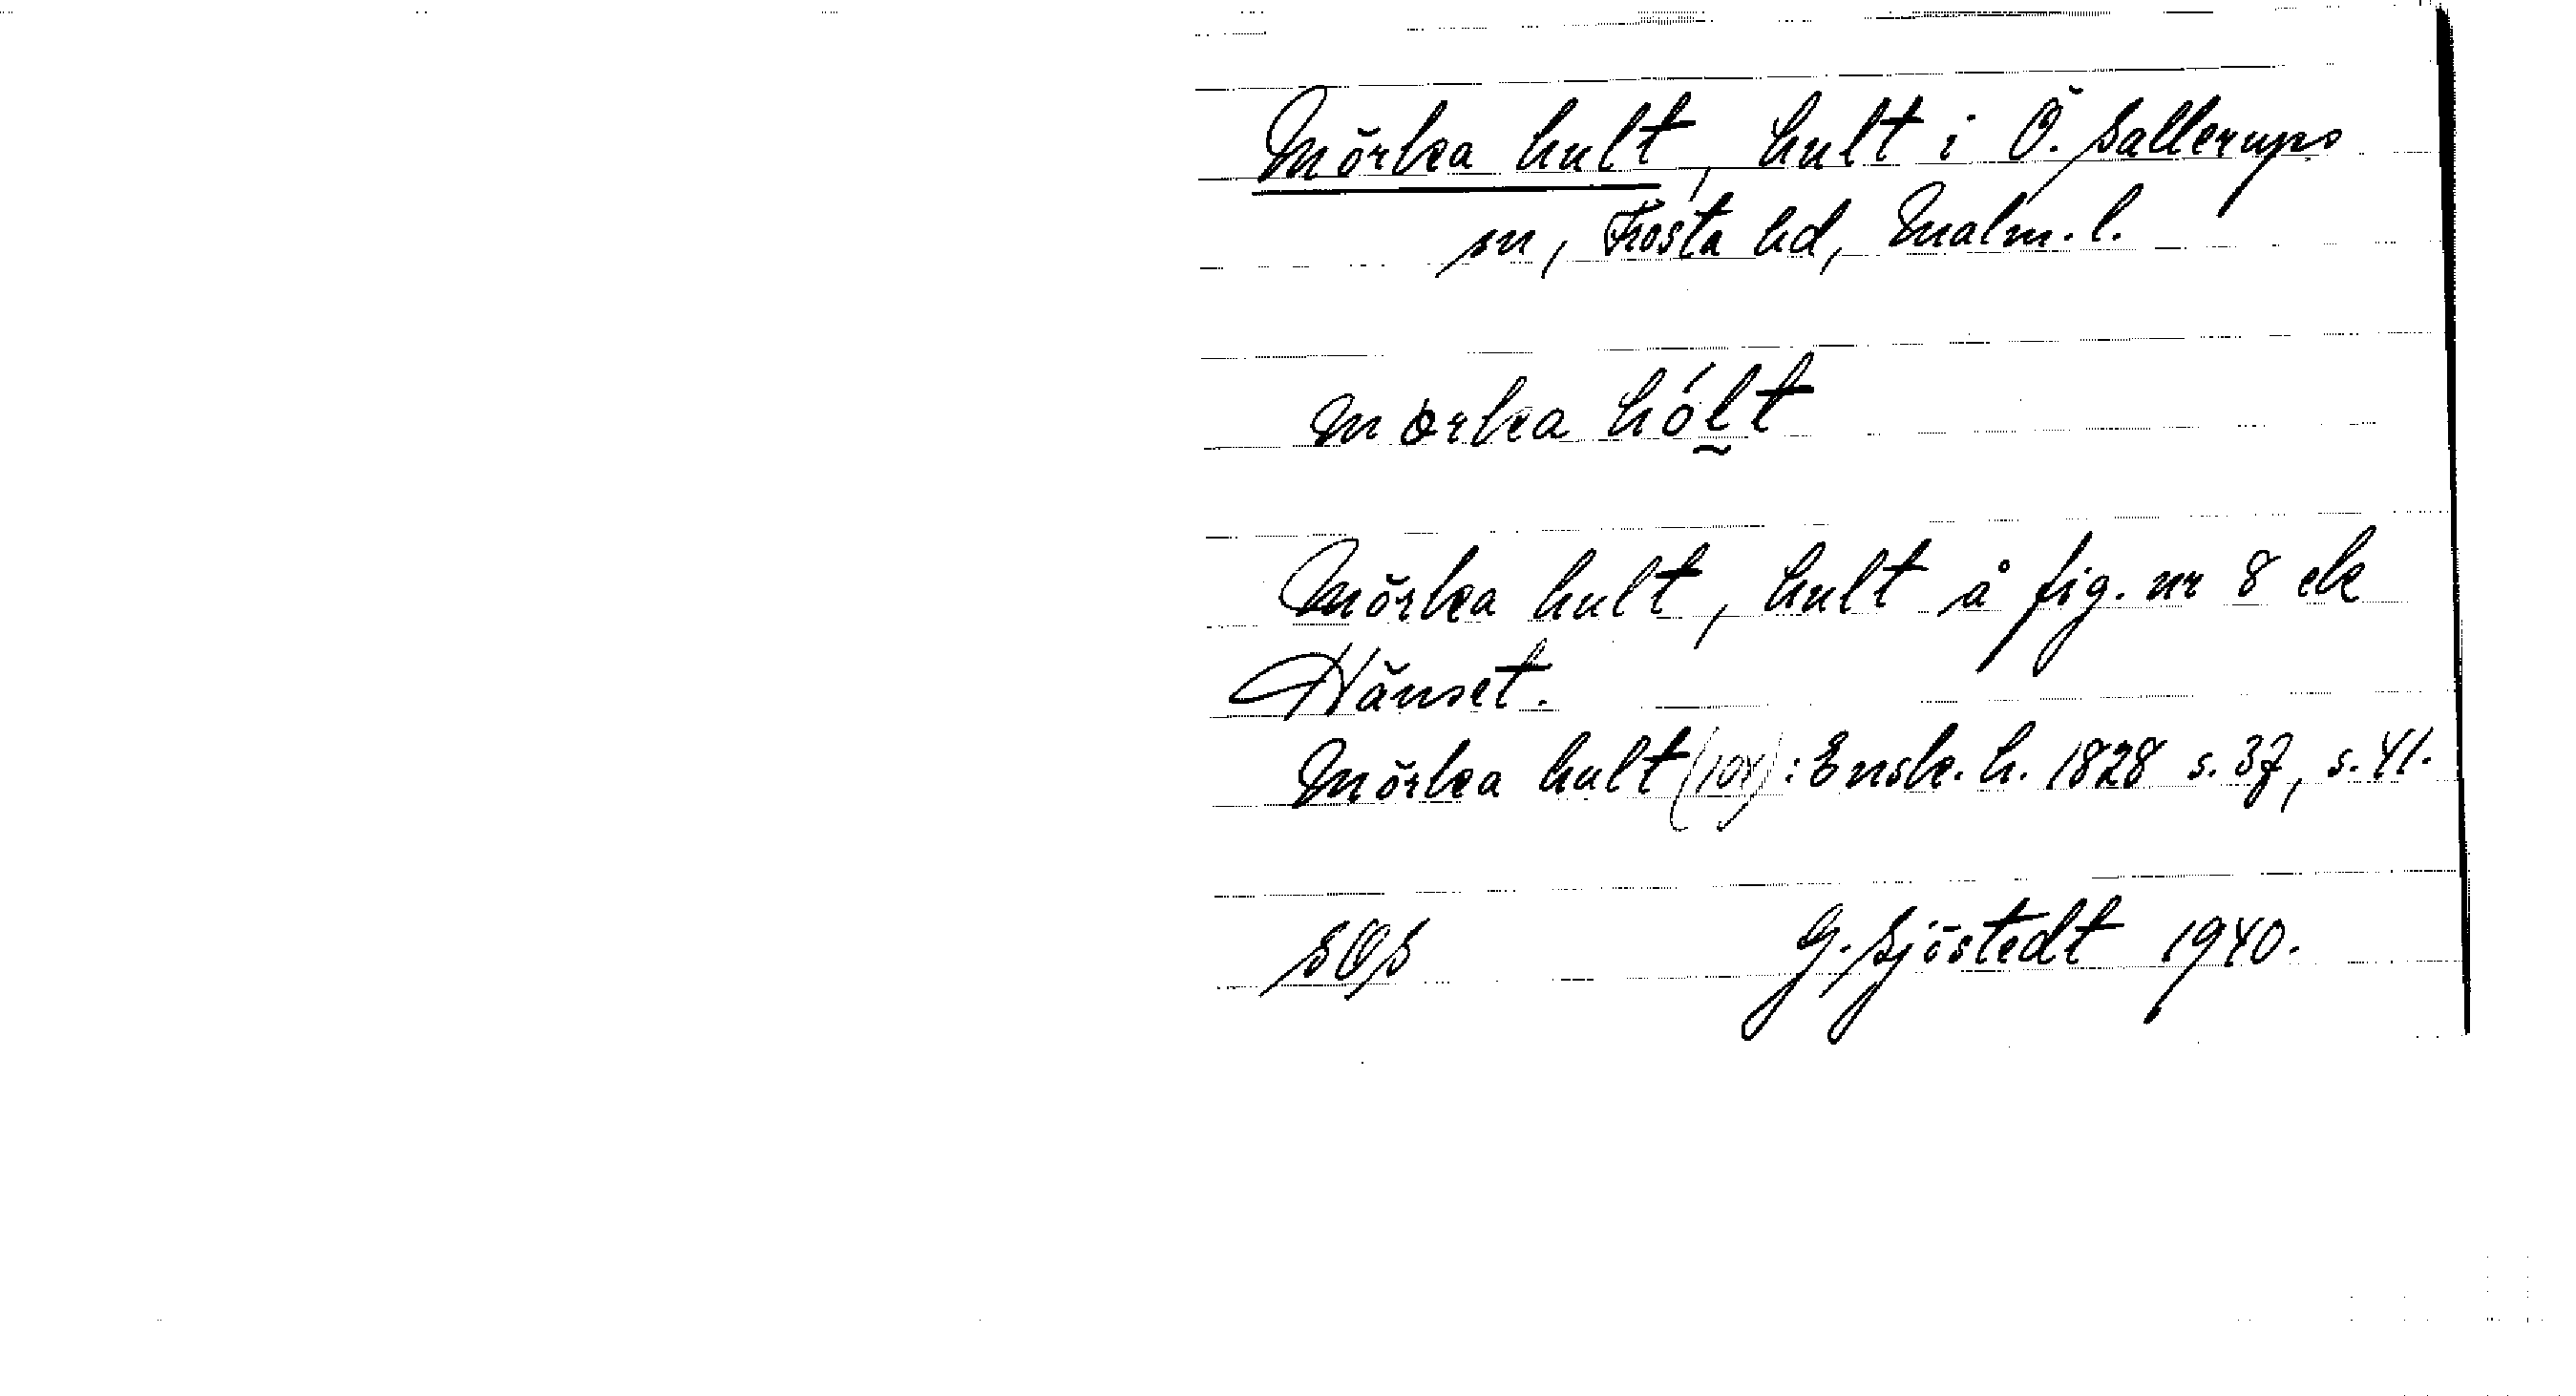 Mörka hult, hult i Ö. Sallerups
sn, Frosta hd, Malm. l.
mörka hólt
Mörka hult, hult å fig. nr 8 ek
Hänset.
Mörka hult (104): Ensk. h. 1828 s. 37, s. 41.
SOS G. Sjöstedt 1940.